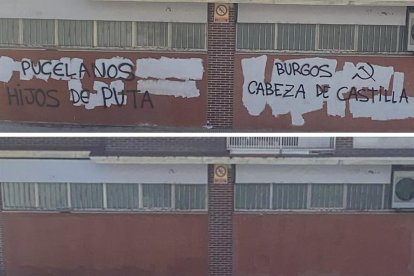 PUCELANOS
HIJOS DE PUTA
BURGOS ☭
CABEZA DE CASTILLA